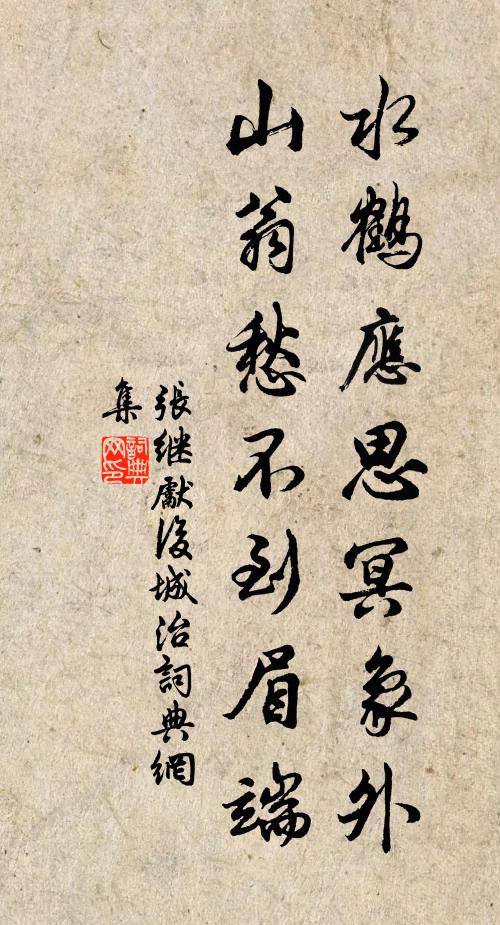 水鶴應思冥象外
山翁愁不到眉端
張继獻後城治詞典網
集
詞典
网印